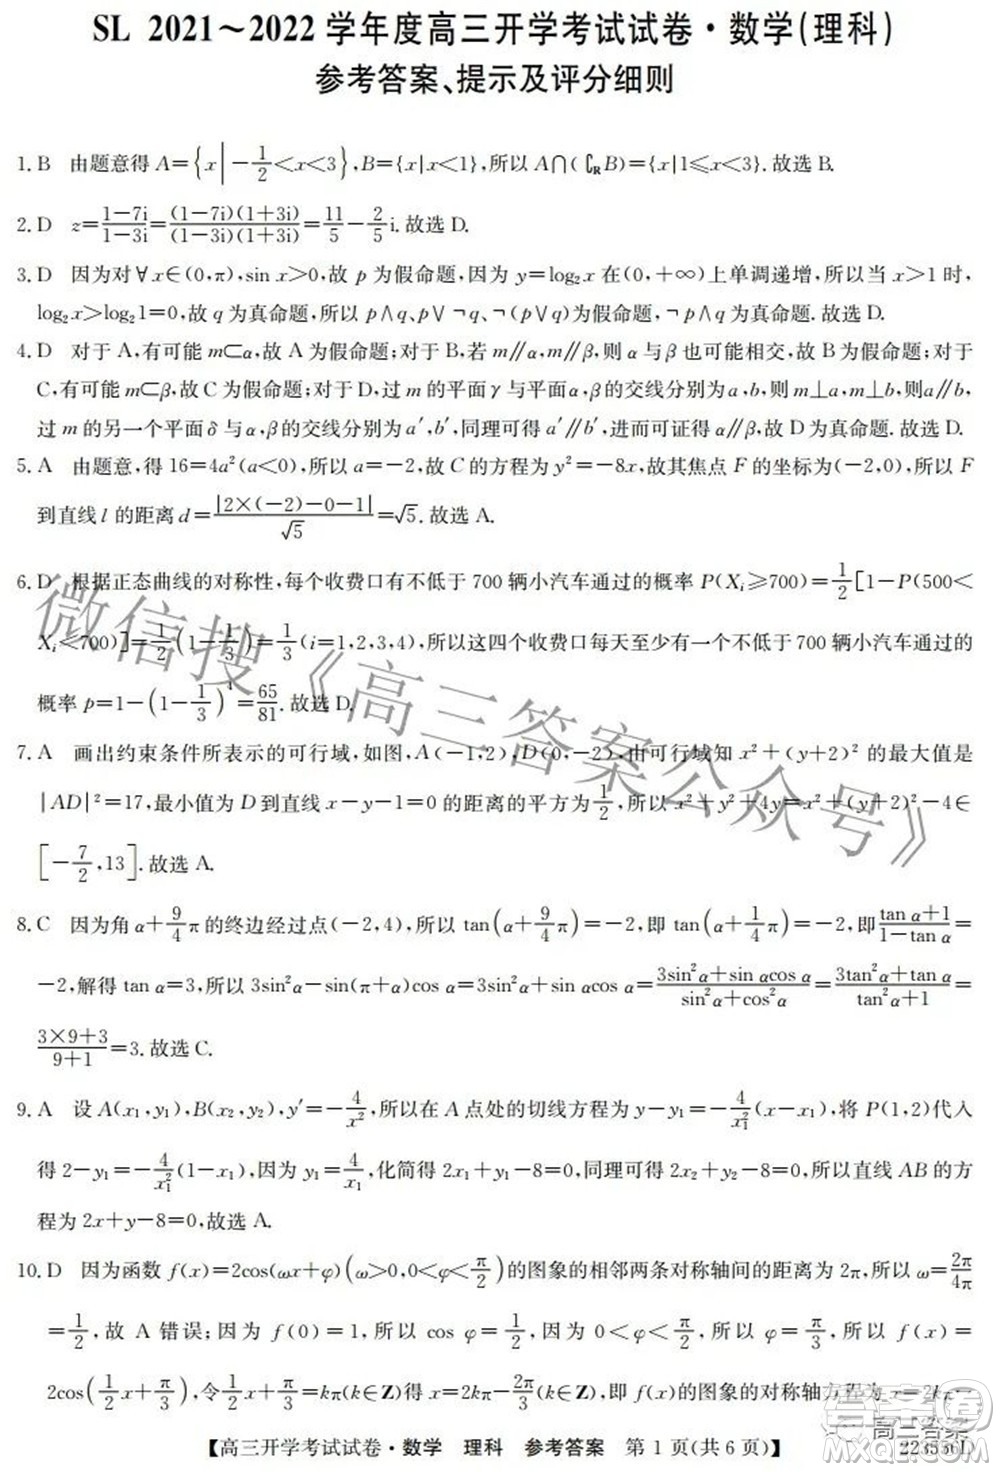 SL 2021～2022 学年度高三开学考试试卷·数学(理科)
参考答案、提示及评分细则
1. B 由题意得 A={x|-1/2<x<3},B={x|x<1},所以 A∩(∁RB)={x|1≤x<3}.故选 B.
2. D z=(1-7i)/(1-3i)=(1-7i)(1+3i)/(1-3i)(1+3i)=11/5-2/5i.故选 D.
3. D 因为对∀x∈(0,π),sin x>0,故 p 为假命题,因为 y=log₂x 在(0,+∞)上单调递增,所以当 x>1 时,
log₂x>log₂1=0,故 q 为真命题,所以 p∧q、p∨¬q、¬(p∨q)为假命题,¬p∧q 为真命题.故选 D.
4. D 对于 A,有可能 m⊂α,故 A 为假命题;对于 B,若 m∥α,m∥β,则α与β也可能相交,故 B 为假命题;对于
C,有可能 m⊂β,故 C 为假命题;对于 D,过 m 的平面γ与平面α,β的交线分别为 a,b,则 m⊥a,m⊥b,则a∥b,
过 m 的另一个平面δ与α,β的交线分别为 a′,b′,同理可得 a′∥b′,进而可证得α∥β,故 D 为真命题.故选 D.
5. A 由题意,得 16=4a²(a<0),所以 a=-2,故 C 的方程为 y²=-8x,故其焦点 F 的坐标为(-2,0),所以 F
到直线 l 的距离 d=|2×(-2)-0-1|/√5=√5.故选 A.
6. D 根据正态曲线的对称性,每个收费口有不低于 700 辆小汽车通过的概率 P(Xᵢ≥700)=1/2[1-P(500<
Xᵢ<700)]=1/2(1-1/3)=1/3(i=1,2,3,4),所以这四个收费口每天至少有一个不低于 700 辆小汽车通过的
概率 p=1-(1-1/3)⁴=65/81.故选 D.
7. A 画出约束条件所表示的可行域,如图,A(-1,2),D(0,-2),由可行域知 x²+(y+2)² 的最大值是
|AD|²=17,最小值为 D 到直线 x-y-1=0 的距离的平方为1/2,所以 x²+y²+4y=x²+(y+2)²-4∈
[-7/2,13].故选 A.
8. C 因为角 α+9/4π的终边经过点(-2,4),所以 tan(α+9/4π)=-2,即 tan(α+1/4π)=-2,即(tan α+1)/(1-tan α)=
-2,解得 tan α=3,所以 3sin²α-sin(π+α)cos α=3sin²α+sin αcos α=(3sin²α+sin αcos α)/(sin²α+cos²α)=(3tan²α+tan α)/(tan²α+1)=
(3×9+3)/(9+1)=3.故选 C.
9. A 设 A(x₁,y₁),B(x₂,y₂),y′=-4/x²,所以在 A 点处的切线方程为 y-y₁=-4/x₁²(x-x₁),将 P(1,2)代入
得 2-y₁=-4/x₁²(1-x₁),因为 y₁=4/x₁,化简得 2x₁+y₁-8=0,同理可得 2x₂+y₂-8=0,所以直线 AB 的方
程为 2x+y-8=0,故选 A.
10. D 因为函数 f(x)=2cos(ωx+φ)(ω>0,0<φ<π/2)的图象的相邻两条对称轴间的距离为 2π,所以 ω=2π/4π
=1/2,故 A 错误;因为 f(0)=1,所以 cos φ=1/2,因为 0<φ<π/2,所以 φ=π/3,所以 f(x)=
2cos(1/2x+π/3),令1/2x+π/3=kπ(k∈Z)得 x=2kπ-2π/3(k∈Z),即 f(x)的图象的对称轴方程为 x=2kπ-
【高三开学考试试卷·数学 理科 参考答案 第 1 页(共 6 页)】
223536D
微信搜《高三答案公众号》
高三答案